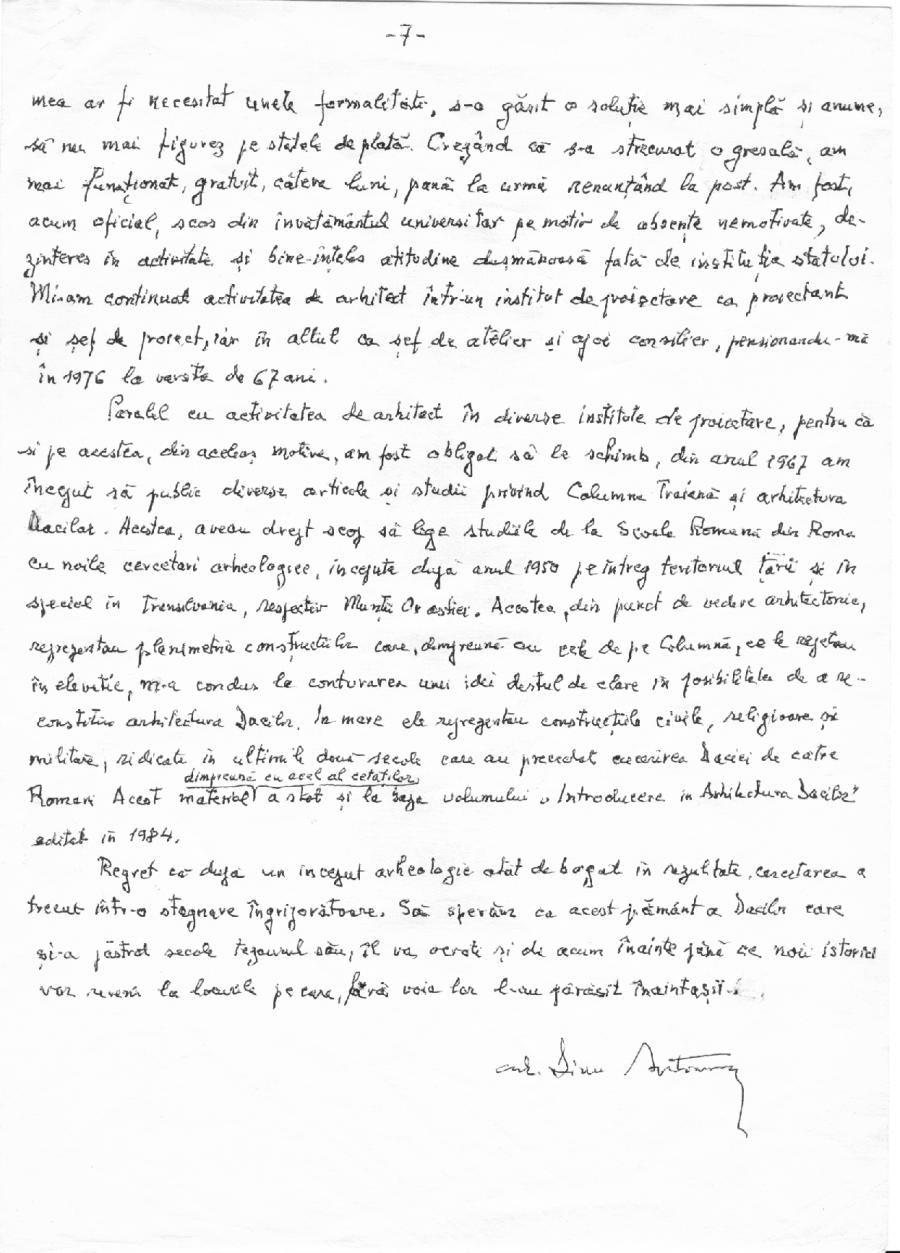 -7-
mea ar fi necesitat unele formalități, s-a găsit o soluție mai simplă și anume,
să nu mai figurez pe statele de plată. Crezând că s-a strecurat o greșală, am
mai funcționat, gratuit, câteva luni, până la urmă renunțând la post. Am fost,
acum oficial, scos din învătământul universitar pe motiv de absențe nemotivate, de-
zinteres în activitate și bine-înțeles atitudine dușmănoasă față de instituția statului.
Mi-am continuat activitatea de arhitect într-un institut de proiectare ca proiectant
și șef de proiect, iar în altul ca șef de atelier și apoi consilier, pensionandu-mă
în 1976 la varsta de 67 ani.
Paralel cu activitatea de arhitect în diverse institute de proiectare, pentru că
si pe acestea, din aceleaș motive, am fost obligat să le schimb, din anul 1967 am
început să public diverse articole și studii privind Columna Traiană și arhitectura
Dacilor. Acestea, aveau drept scop să lege studiile de la Scoala Romană din Roma
cu noile cercetări arheologice, începute după anul 1950 pe întreg teritoriul țării și în
special în Transilvania, respectiv Munții Orastiei. Acestea, din punct de vedere arhitectonic,
reprezentau planimetria construcțiilor care, dimpreună cu cele de pe Columnă, ce le redau
în elevatie, m-a condus la conturarea unei idei destul de clare in posibilitatea de a re-
constitui arhitectura Dacilor. In mare ele reprezentau construcțiile civile, religioase și
militare, ridicate în ultimile două secole care au precedat cucerirea Daciei de catre
dimpreună cu acel al cetaților
Romani Acest material a stat și la baza volumului "Introducere in Arhitectura Dacilor"
editat în 1984.
Regret ca după un inceput arheologic atât de bogat în rezultate, cercetarea a
trecut într-o stagnare îngrijorătoare. Să sperăm ca acest pământ a Dacilor care
și-a păstrat secole tezaurul său, îl va ocroti și de acum înainte până ce noii istorici
vor reveni la locurile pe care, fără voia lor l-au părăsit înaintașii.
arh. Dinu Antonescu